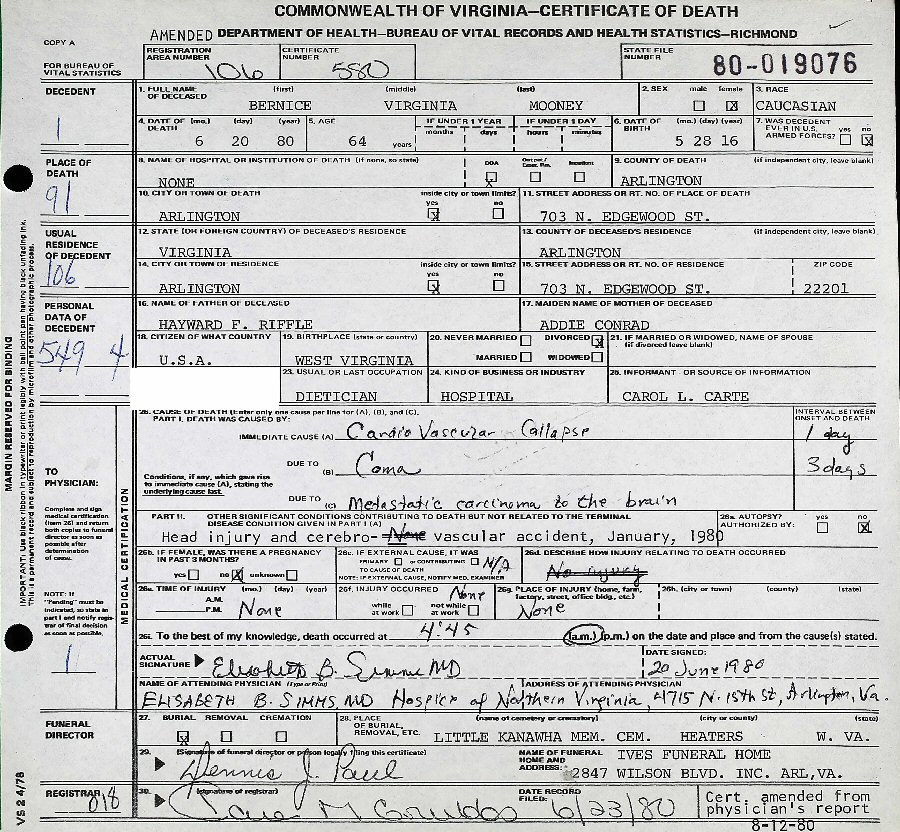 COMMONWEALTH OF VIRGINIA—CERTIFICATE OF DEATH
AMENDED DEPARTMENT OF HEALTH—BUREAU OF VITAL RECORDS AND HEALTH STATISTICS—RICHMOND
COPY A
FOR BUREAU OF VITAL STATISTICS
REGISTRATION AREA NUMBER 106
CERTIFICATE NUMBER 580
STATE FILE NUMBER 80-019076
DECEDENT
1
1. FULL NAME OF DECEASED (first) (middle) (last)
BERNICE VIRGINIA MOONEY
2. SEX male female X
3. RACE
CAUCASIAN
4. DATE OF DEATH (mo.) (day) (year)
6 20 80
5. AGE
64 years
IF UNDER 1 YEAR months days
IF UNDER 1 DAY hours minutes
6. DATE OF BIRTH (mo.) (day) (year)
5 28 16
7. WAS DECEDENT EVER IN U.S. ARMED FORCES? yes no X
PLACE OF DEATH
91
8. NAME OF HOSPITAL OR INSTITUTION OF DEATH (if none, so state)
NONE
DOA X Inpatient
9. COUNTY OF DEATH (if independent city, leave blank)
ARLINGTON
10. CITY OR TOWN OF DEATH inside city or town limits? yes X no
ARLINGTON
11. STREET ADDRESS OR RT. NO. OF PLACE OF DEATH
703 N. EDGEWOOD ST.
USUAL RESIDENCE OF DECEDENT
106
12. STATE (OR FOREIGN COUNTRY) OF DECEASED'S RESIDENCE
VIRGINIA
13. COUNTY OF DECEASED'S RESIDENCE (if independent city, leave blank)
ARLINGTON
14. CITY OR TOWN OF RESIDENCE inside city or town limits? yes X no
ARLINGTON
15. STREET ADDRESS OR RT. NO. OF RESIDENCE ZIP CODE
703 N. EDGEWOOD ST. 22201
PERSONAL DATA OF DECEDENT
549 4
16. NAME OF FATHER OF DECEASED
HAYWARD F. RIFFLE
17. MAIDEN NAME OF MOTHER OF DECEASED
ADDIE CONRAD
18. CITIZEN OF WHAT COUNTRY
U.S.A.
19. BIRTHPLACE (state or country)
WEST VIRGINIA
20. NEVER MARRIED DIVORCED X
MARRIED WIDOWED
21. IF MARRIED OR WIDOWED, NAME OF SPOUSE
(if divorced leave blank)
23. USUAL OR LAST OCCUPATION
DIETICIAN
24. KIND OF BUSINESS OR INDUSTRY
HOSPITAL
25. INFORMANT OR SOURCE OF INFORMATION
CAROL L. CARTE
MARGIN RESERVED FOR BINDING
IMPORTANT! Use black ribbon in typewriter or print legibly with ball point pan having black unfading ink.
This is a permanent record and subject to reproduction by microfilm and other photographic process.
TO PHYSICIAN:
Complete and sign medical certification (item 26) and return both copies to funeral director as soon as possible after determination of cause.
NOTE: If "Pending" must be indicated, so state in part I and notify registrar of final decision as soon as possible.
1
MEDICAL CERTIFICATION
26. CAUSE OF DEATH (Enter only one cause per line for (A), (B), and (C).
PART I. DEATH WAS CAUSED BY:
INTERVAL BETWEEN ONSET AND DEATH
IMMEDIATE CAUSE (A) Cardio Vascular Collapse 1 day
DUE TO (B) Coma 3 days
Conditions, if any, which gave rise to immediate cause (A), stating the underlying cause last.
DUE TO (C) Metastatic carcinoma to the brain
PART II. OTHER SIGNIFICANT CONDITIONS CONTRIBUTING TO DEATH BUT NOT RELATED TO THE TERMINAL DISEASE CONDITION GIVEN IN PART I (A)
Head injury and cerebro- None vascular accident, January, 1980
26a. AUTOPSY? AUTHORIZED BY: yes no X
26b. IF FEMALE, WAS THERE A PREGNANCY IN PAST 3 MONTHS?
yes no X unknown
26c. IF EXTERNAL CAUSE, IT WAS
PRIMARY or CONTRIBUTING N/A
TO CAUSE OF DEATH
NOTE: IF EXTERNAL CAUSE, NOTIFY MED. EXAMINER
26d. DESCRIBE HOW INJURY RELATING TO DEATH OCCURRED
No injury
26e. TIME OF INJURY (mo.) (day) (year)
A.M.
P.M. None
26f. INJURY OCCURRED None
while at work not while at work
26g. PLACE OF INJURY (home, farm, factory, street, office bldg., etc.)
None
26h. (city or town) (county) (state)
26i. To the best of my knowledge, death occurred at 4:45 (a.m.) (p.m.) on the date and place and from the cause(s) stated.
ACTUAL SIGNATURE Elisabeth B. Simms MD
DATE SIGNED:
20 June 1980
NAME OF ATTENDING PHYSICIAN (Type or Print) ADDRESS OF ATTENDING PHYSICIAN
ELISABETH B. SIMMS, MD Hospice of Northern Virginia, 4715 N. 15th St, Arlington, Va.
FUNERAL DIRECTOR
27. BURIAL X REMOVAL CREMATION
28. PLACE OF BURIAL, REMOVAL, ETC. (name of cemetery or crematory) (city or county) (state)
LITTLE KANAWHA MEM. CEM. HEATERS W. VA.
29. (Signature of funeral director or person legally filing this certificate)
Dennis J. Paul
NAME OF FUNERAL HOME AND ADDRESS:
IVES FUNERAL HOME
2847 WILSON BLVD. INC. ARL,VA.
REGISTRAR
018
30. (signature of registrar)
DATE RECORD FILED: 6/23/80
Cert. amended from physician's report
8-12-80
VS 2 4/78